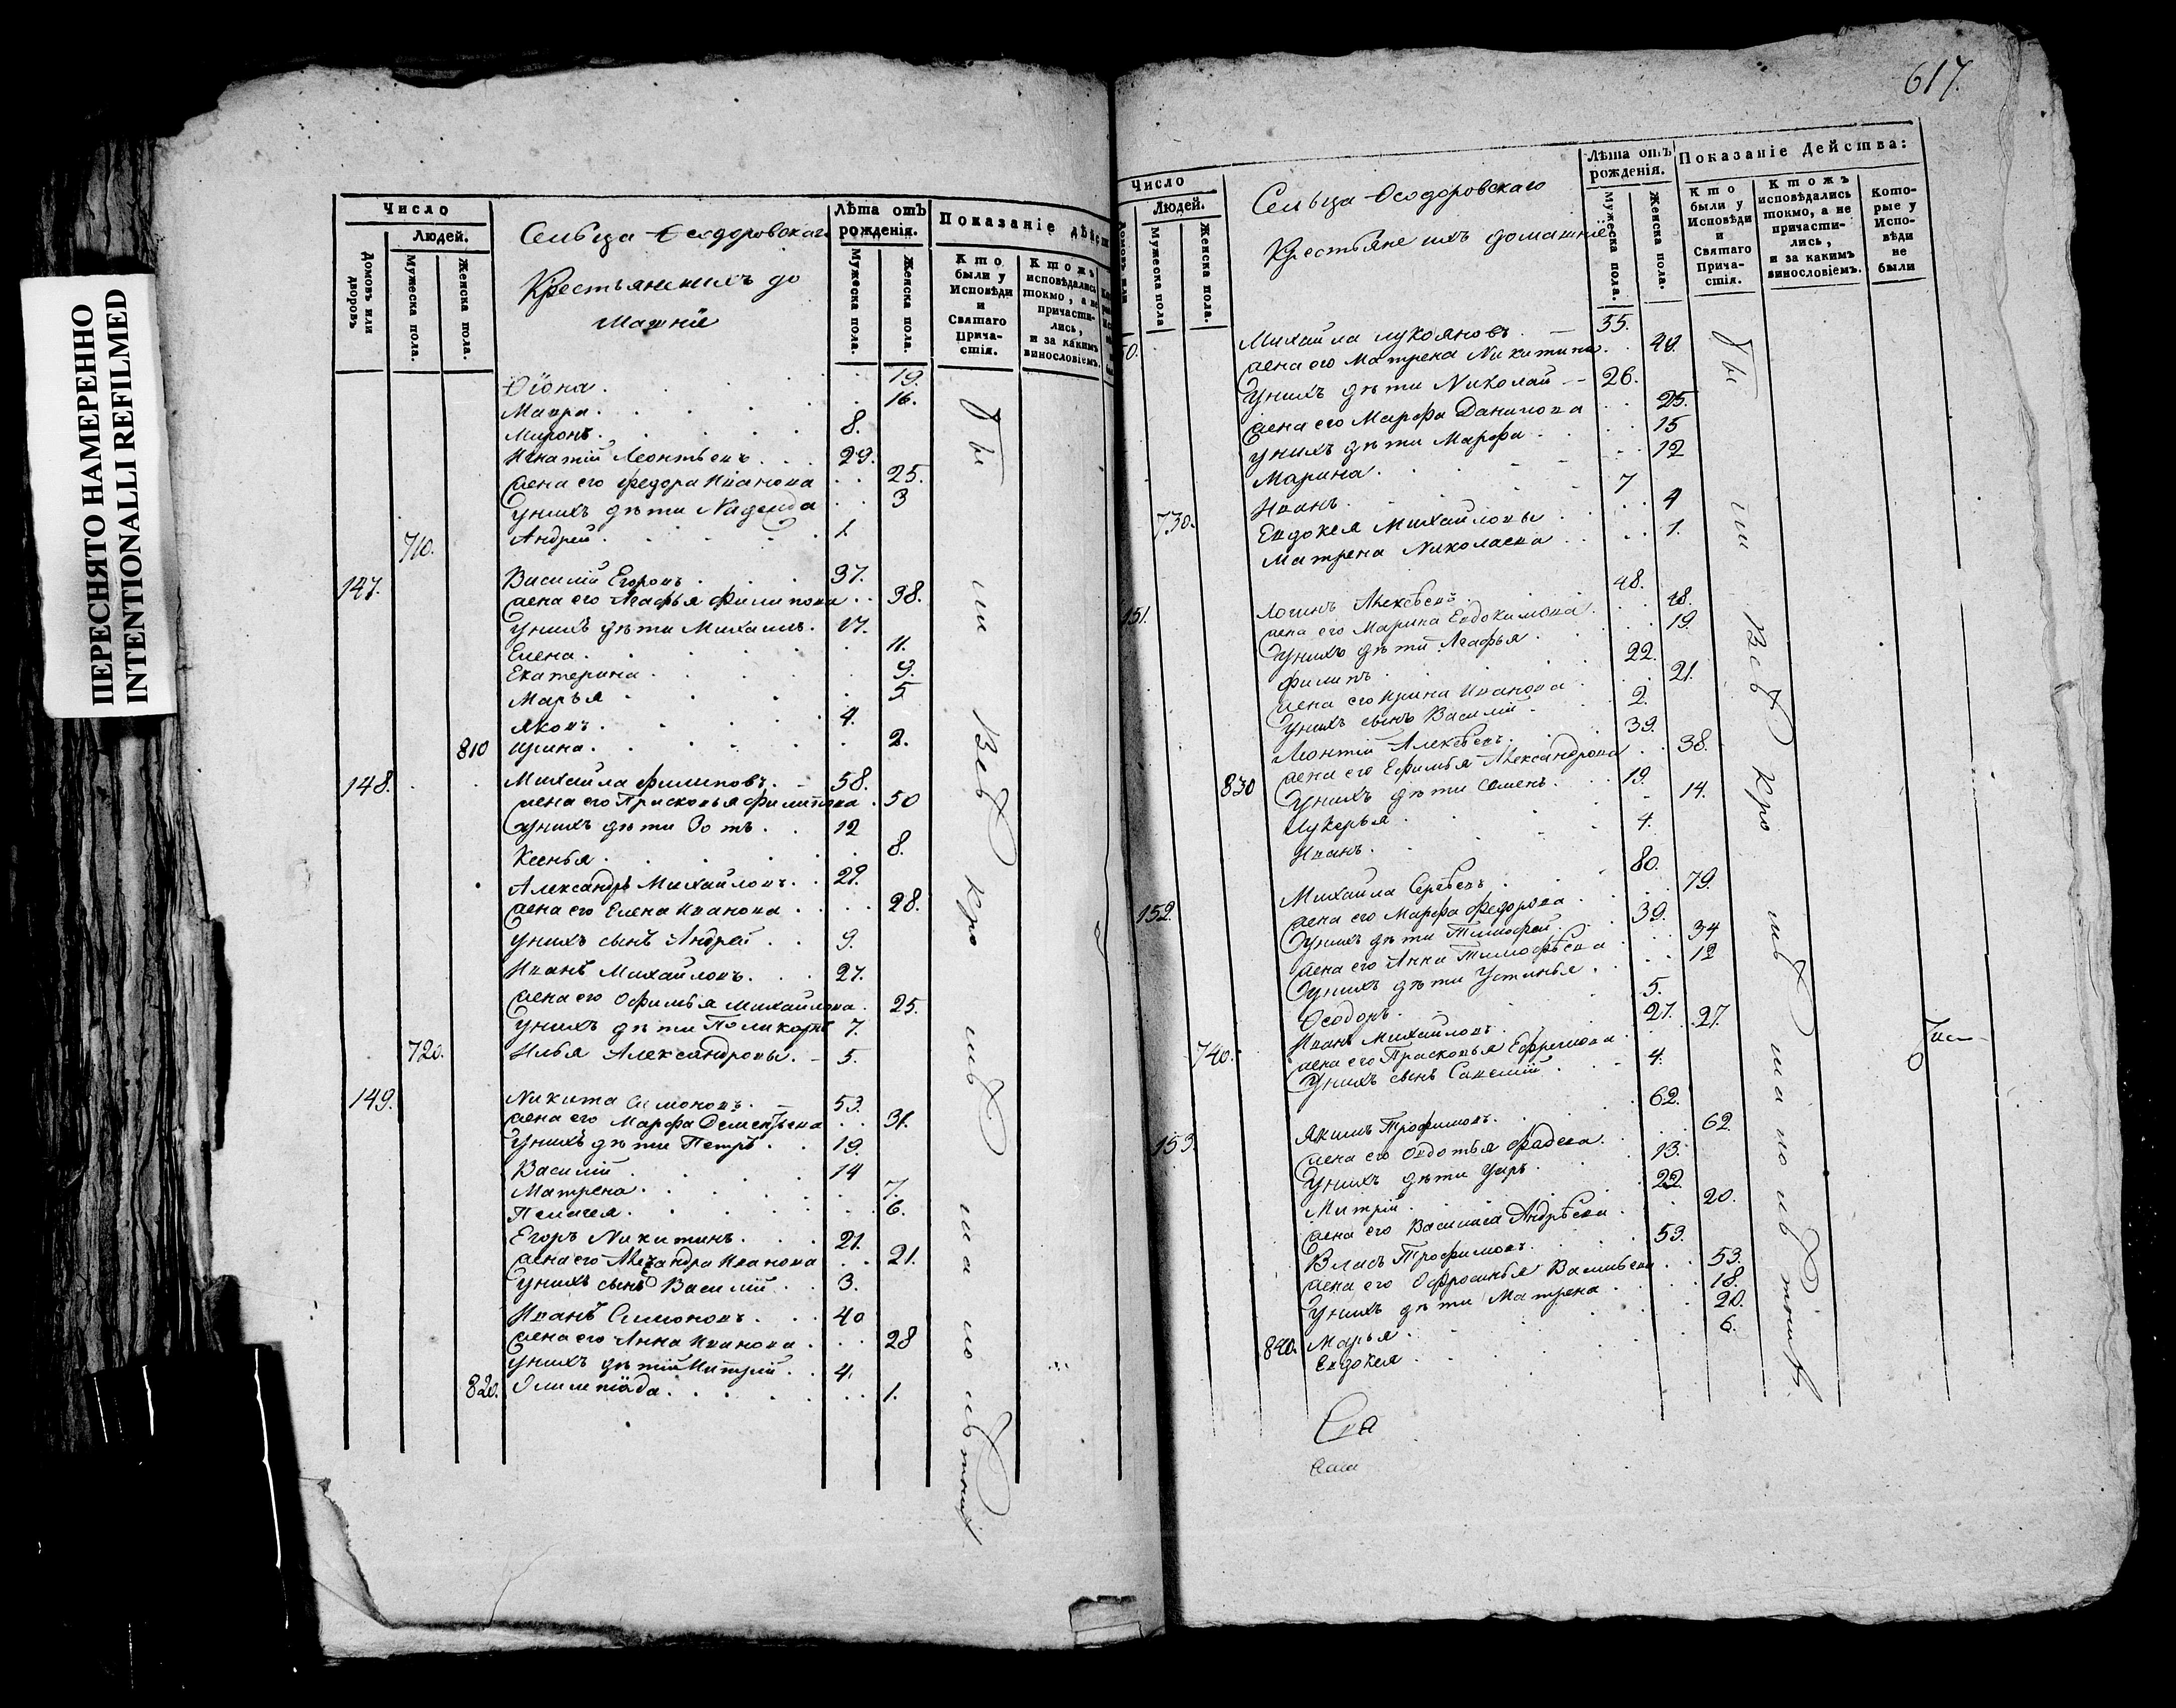 ПЕРЕСНЯТО НАМЕРЕННО
INTENTIONALLI REFILMED
Число
Людей.
Домовъ или дворовъ
Мужеска пола.
Женска пола.
Сельца Ѳеодоровскаго
Крестьяне ихъ до
машніе
Лѣта отъ рожденія.
Мужеска пола.
Женска пола.
Показаніе дѣйст
Кто были у Исповѣди и Святаго Прича-стія.
Ктожъ исповѣдались токмо, а не причасти-лись, и за какимъ винословіемъ.
19.
Мавра. 16.
Миронъ. 8.
Игнатій Леонтьевъ 29.
жена его Федора Иванова 25.
у нихъ дѣти Надежда 3
710. Андрей 1.
147. Василій Егоровъ 37.
жена его Агафья Филипова 38.
у нихъ дѣти Михаилъ. 17.
Елена 11.
Екатерина 9.
Марья 5.
Яковъ. 4.
810 Ирина. 2.
148. Михайла Филиповъ. 58.
жена его Прасковья Филипова 50
у нихъ дѣти Зотъ. 12
Ксенья. 8.
Александръ Михайловъ. 29.
жена его Елена Иванова 28.
у нихъ сынъ Андрей 9.
Иванъ Михайловъ. 27.
жена его Офимья Михайлова. 25.
у нихъ дѣти Поликарпъ 7.
720. Илья Александровы. 5.
149. Никита Симоновъ. 53.
жена его Марфа Дементьева 31.
у нихъ дѣти Петръ. 19.
Василій 14
Матрена. 7.
Пелагея. 6.
Егоръ Никитинъ. 21.
жена его Александра Иванова 21.
у нихъ сынъ Василій 3.
Иванъ Симоновъ. 40
жена его Анна Иванова. 28
у нихъ дѣти Митрій 4.
820. Олимпіада. 1.
Бы ли Всѣ кро мѣ ма ло лѣ тныхъ
617.
Число
Людей.
Мужеска пола
Женска пола.
Сельца Ѳеодоровскаго
Крестьяне ихъ домашніе
Лѣта отъ рожденія.
Мужеска пола.
Женска пола.
Показаніе Действа:
Кто были у Исповѣди и Святаго Прича-стія.
Ктожъ исповѣдались токмо, а не причасти-лись, и за какимъ винословіемъ.
Кото-рые у Испо-вѣди не были
50. Михайла Лукояновъ. 55.
жена его Матрена Никитина. 49.
у нихъ дѣти Николай 26.
жена его Марфа Данилова 25.
у нихъ дѣти Марфа. 15
Марина. 12
730. Иванъ. 7
Евдокея Михайловы 4
Матрена Николаева 1.
151. Логинъ Алексѣевъ. 48.
жена его Марина Евдокимова 48.
у нихъ дѣти Агафья 19.
Филипъ. 22.
жена его Ирина Иванова 21.
у нихъ сынъ Василій. 2.
Леонтій Алексѣевъ. 39.
830 жена его Ефимья Александрова 38.
у нихъ дѣти Семенъ. 19.
Лукерья. 14.
Иванъ. 4.
152. Михайла Сергѣевъ 80.
жена его Марфа Федорова 79.
у нихъ дѣти Тимофей. 39.
жена его Анна Тимофѣева 34
у нихъ дѣти Устинья. 12
Ѳеодоръ. 5.
740. Иванъ Михайловъ. 27.
жена его Прасковья Ефремова 27.
у нихъ сынъ Савелій. 4.
153. Якимъ Трофимовъ. 62.
жена его Овдотья Фадеева. 62.
у нихъ дѣти 13.
Митрій. 22
жена его Василиса Андрѣева 20.
Власъ Трофимовъ. 53.
жена его Офросинья Васильева 53.
у нихъ дѣти Матрена. 18.
840. Марья. 20.
Евдокея. 6.
Бы ли Всѣ кро мѣ ма ло лѣ тныхъ